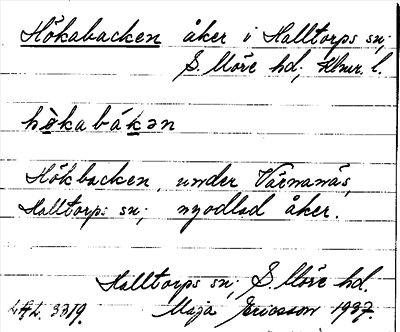 Hökabacken åker i Halltorps sn;
S. Möre hd; Kbur. l.
hö̀kabákən
Hökbacken, under Värnanäs,
Halltorps sn; nyodlad åker.
Halltorps sn; S. Möre hd.
Maja Ericsson 1937.